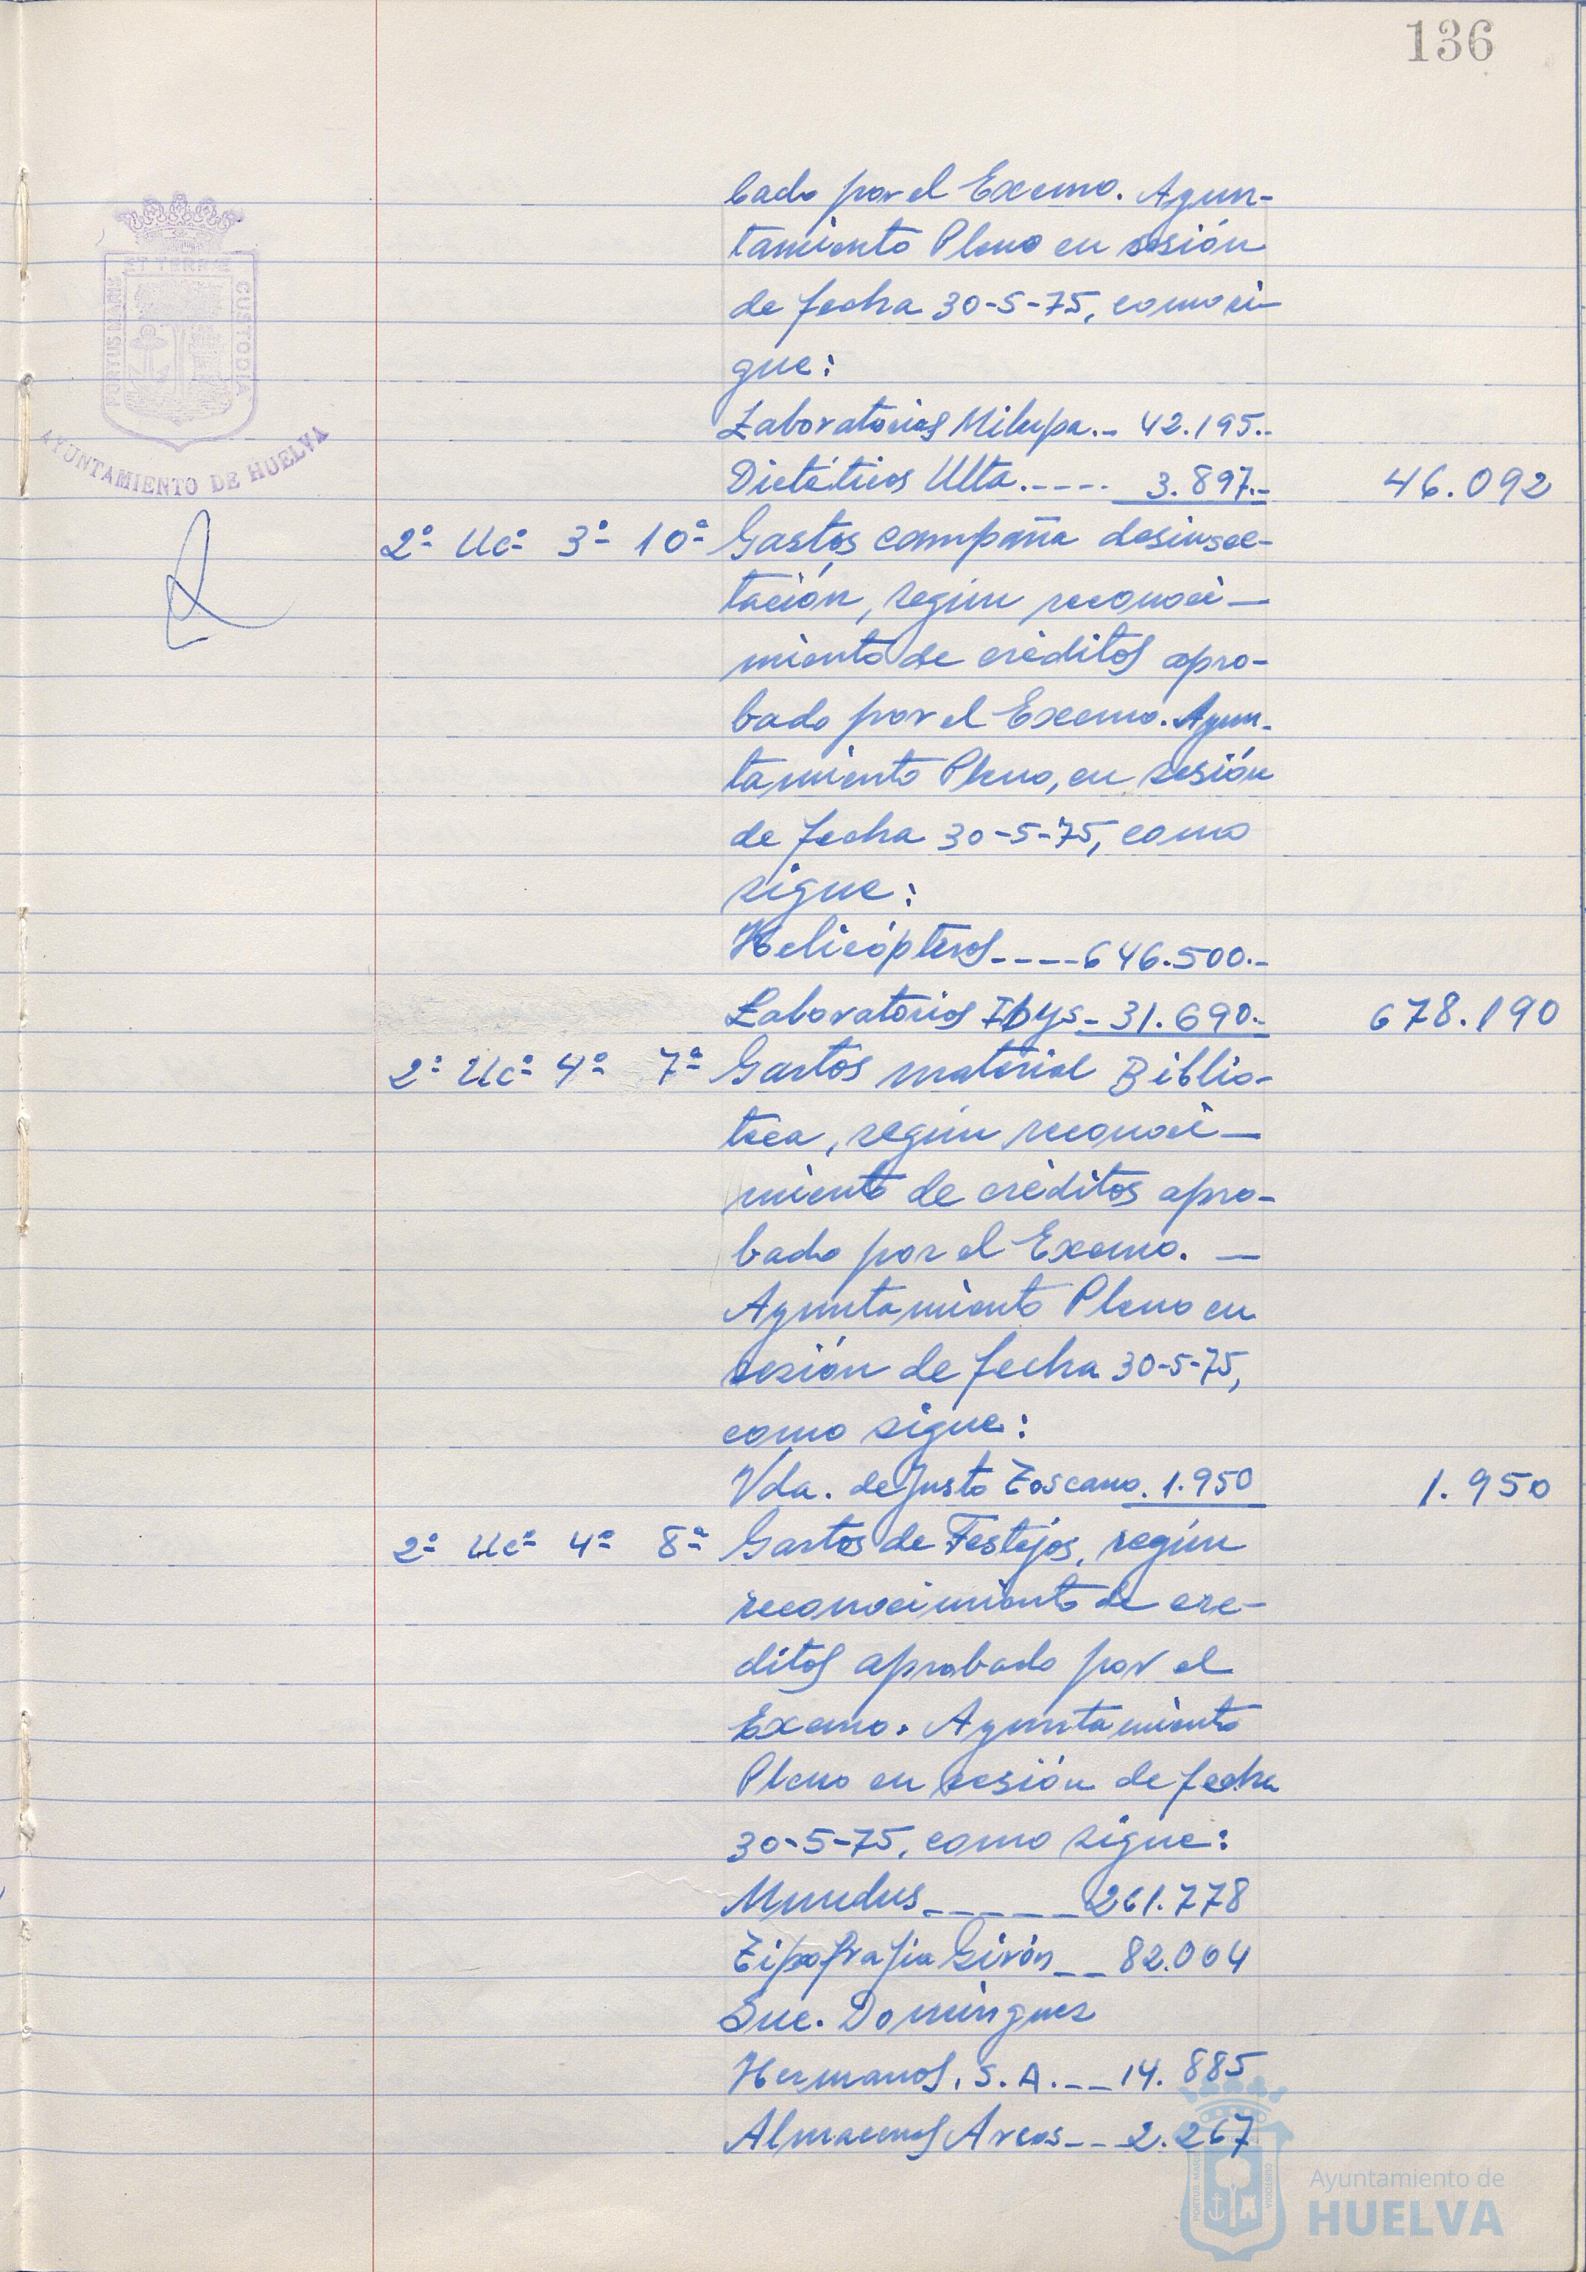 136
bado por el Excmo. Ayun-
tamiento Pleno en sesión
de fecha 30-5-75, como si
gue:
Laboratorios Milupa.- 42.195.-
Dietéticos Ulta.---- 3.897.- 46.092
2º Ucº 3º 10ª Gastos campaña desinsec-
tación, según reconoci-
miento de créditos apro-
bado por el Excmo. Ayun-
tamiento Pleno, en sesión
de fecha 30-5-75, como
sigue:
Helicópteros----646.500.-
Laboratorios Ibys-31.690.- 678.190
2º Ucº 4º 7ª Gastos material Biblio-
teca, según reconoci-
miento de créditos apro-
bado por el Excmo. -
Ayuntamiento Pleno en
sesión de fecha 30-5-75,
como sigue:
Vda. de Justo Toscano. 1.950 1.950
2º Ucº 4º 8ª Gastos de Festejos, según
reconocimiento de cré-
ditos aprobado por el
Excmo. Ayuntamiento
Pleno en sesión de fecha
30-5-75, como sigue:
Mundus______261.778
Tipografia Girón__ 82.004
Suc. Dominguez
Hermanos, S.A.-__14.885
Almacenes Arcos--2.267
PORTUS MARIS
ET TERRAE
CUSTODIA
AYUNTAMIENTO DE HUELVA
Ayuntamiento de
HUELVA